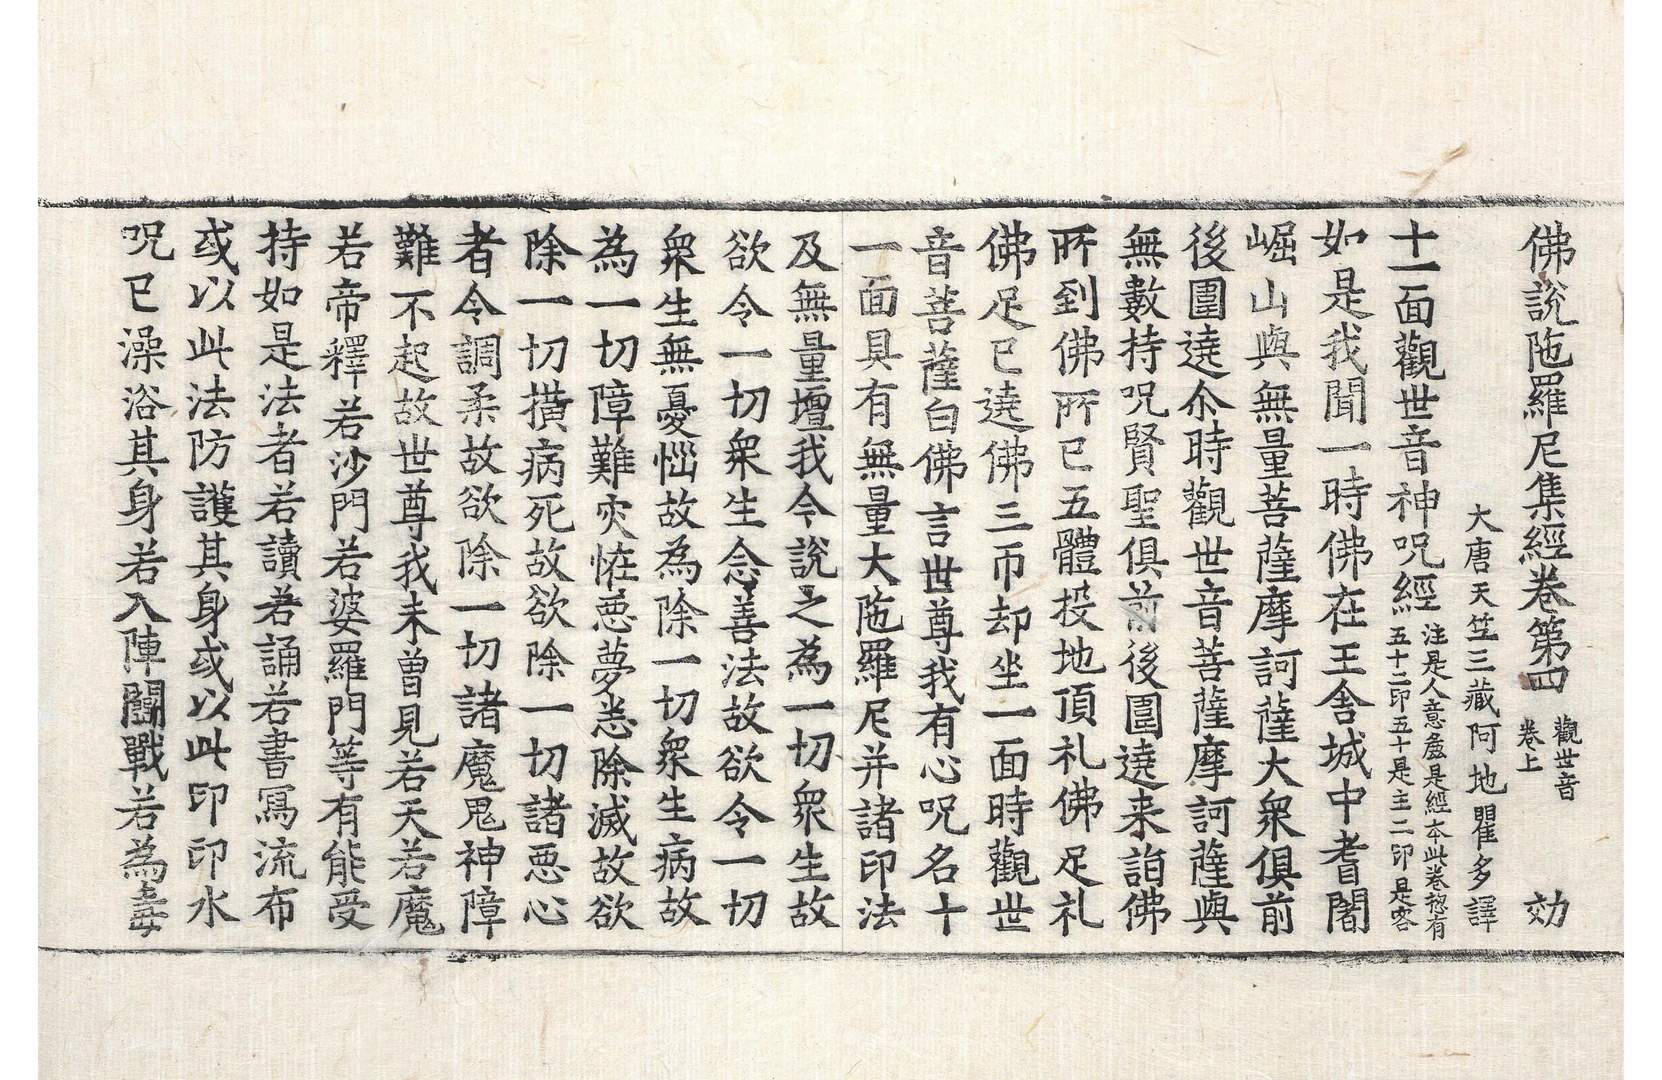 佛說陁羅尼集經卷第四 觀世音卷上 効
大唐天笁三藏阿地瞿多譯
十一面觀世音神呪經 注是人意麁是經本此卷惣有五十二印五十是主二印是客
如是我聞一時佛在王舍城中耆闍
崛山與無量菩薩摩訶薩大衆俱前
後圍遶尒時觀世音菩薩摩訶薩與
無數持呪賢聖俱前後圍遶来詣佛
所到佛所已五體投地頂礼佛足礼
佛足已遶佛三帀却坐一面時觀世
音菩薩白佛言世尊我有心呪名十
一面具有無量大陁羅尼并諸印法
及無量壇我今說之為一切衆生故
欲令一切衆生念善法故欲令一切
衆生無憂惱故為除一切衆生病故
為一切障難灾恠惡夢悉除滅故欲
除一切橫病死故欲除一切諸惡心
者令調柔故欲除一切諸魔鬼神障
難不起故世尊我未曾見若天若魔
若帝釋若沙門若婆羅門等有能受
持如是法者若讀若誦若書寫流布
或以此法防護其身或以此印印水
呪已澡浴其身若入陣鬪戰若為毒